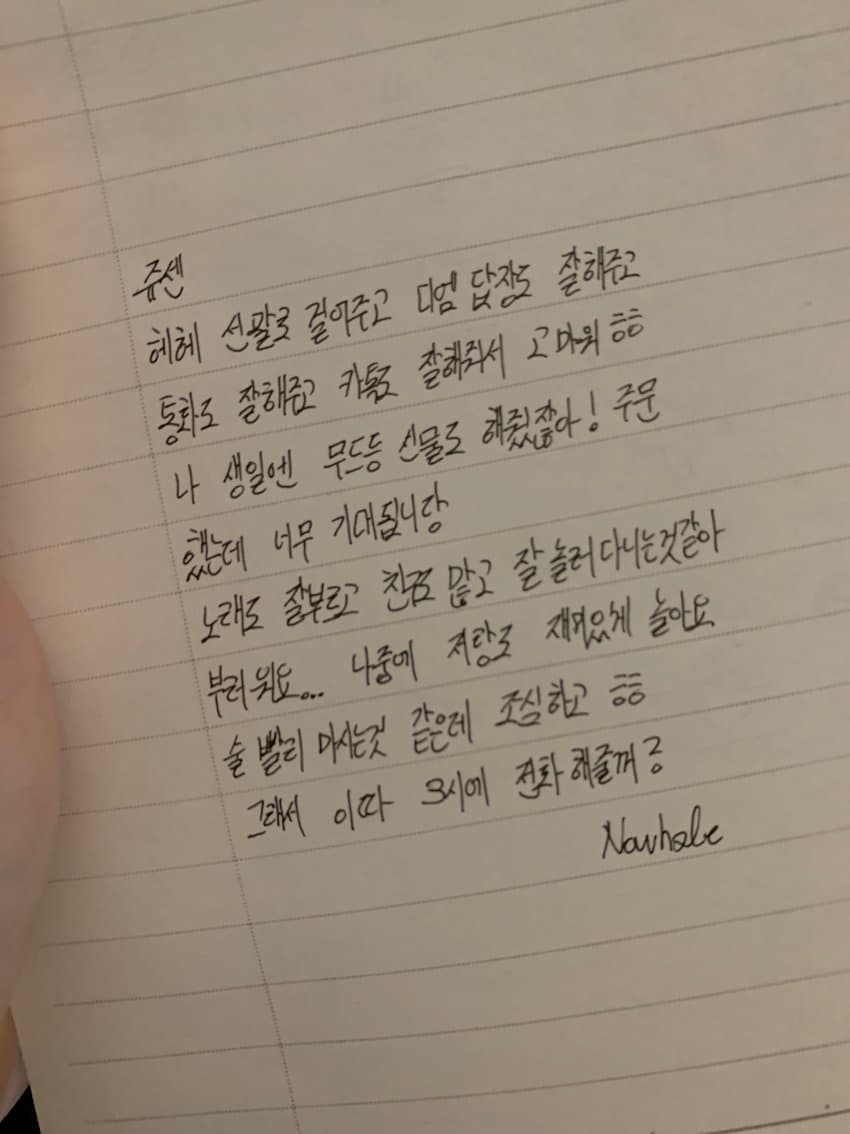 쥬센
헤헤 선팔로 걸어주고 디엠 답장도 잘해주고
통화도 잘해주고 카톡도 잘해줘서 고마워 ㅎㅎ
나 생일엔 무드등 선물도 해줬잖아! 주문
했는데 너무 기대됩니당
노래도 잘부르고 친굳 많고 잘 놀러다니는것같아
부러워요... 나중에 저랑도 재미있게 놀아요
술 빨리 마시는것 같은데 조심하고 ㅎㅎ
그래서 이따 3시에 전화해줄꺼공